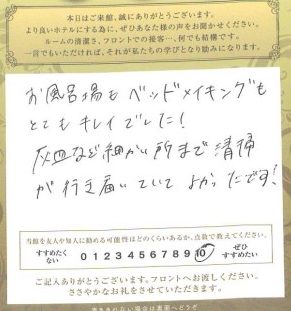 本日はご来館、誠にありがとうございます。
より良いホテルにする為に、ぜひあなた様の声をお聞かせください。
ルームの清潔さ、フロントでの接客…、何でも結構です。
一言でもいただければ、それが私たちの学びとなり励みになります。
お風呂場も ベッドメイキングも
とても キレイでした!
灰皿など細かい所まで 清掃
が行き届いていて よかったです!
当館を友人や知人に勧める可能性はどのくらいあるか、点数で教えてください。
すすめたくない 0 1 2 3 4 5 6 7 8 9 10 ぜひすすめたい
ご記入ありがとうございます。フロントへお渡しください。
ささやかなお礼をさせていただきます。